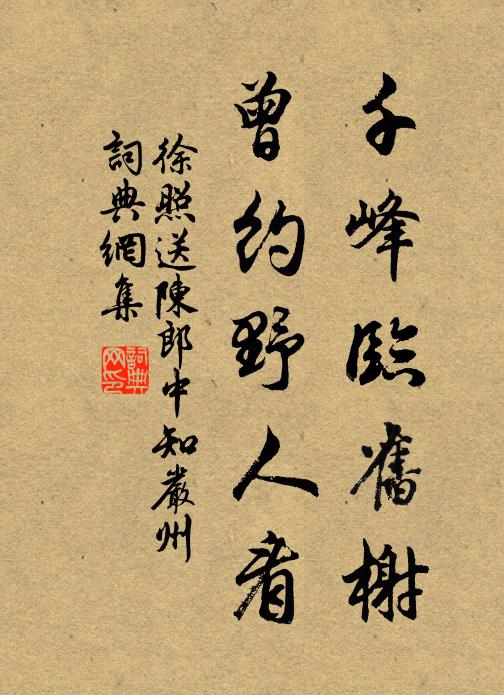 千峰臨舊榭
曾約野人看
徐照送陳郎中知嚴州
詞典網集
詞典
网印